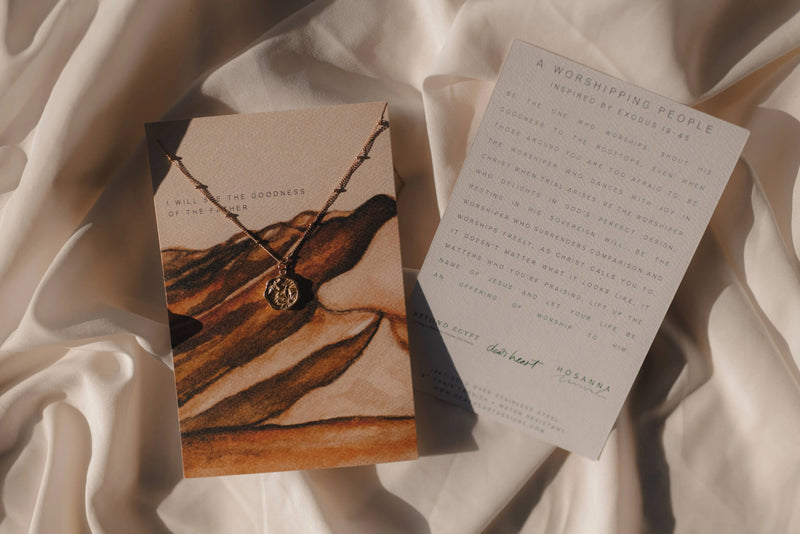 I WILL SEE THE GOODNESS
OF THE FATHER
A WORSHIPPING PEOPLE
INSPIRED BY EXODUS 19-45
BE THE ONE WHO WORSHIPS. SHOUT HIS
GOODNESS TO THE ROOFTOPS, EVEN WHEN
THOSE AROUND YOU ARE TOO AFRAID TO. BE
THE WORSHIPER WHO DANCES WITH JOY IN
CHRIST WHEN TRIAL ARISES. BE THE WORSHIPER
WHO DELIGHTS IN GOD'S PERFECT DESIGN,
RESTING IN HIS SOVEREIGN WILL. BE THE
WORSHIPER WHO SURRENDERS COMPARISON AND
WORSHIPS FREELY, AS CHRIST CALLS YOU TO.
IT DOESN'T MATTER WHAT IT LOOKS LIKE, IT
MATTERS WHO YOU'RE PRAISING. LIFT UP THE
NAME OF JESUS AND LET YOUR LIFE BE
AN OFFERING OF WORSHIP TO HIM.
BEYOND EGYPT
dear heart
HOSANNA
revival
GOLD OVER STAINLESS STEEL
TARNISH + WATER RESISTANT